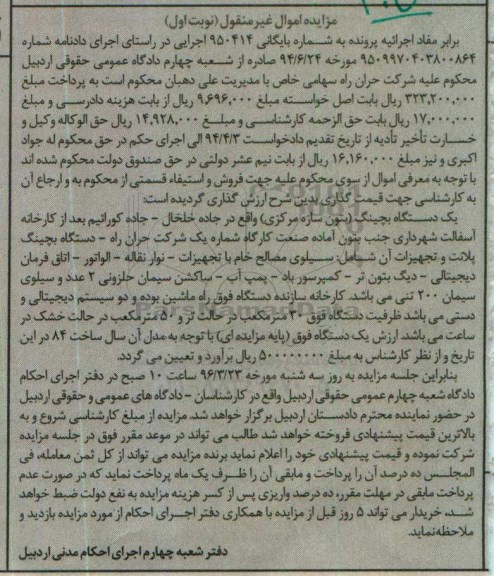 مزایده اموال غیر منقول (نوبت اول)
برابر مفاد اجرائیه پرونده به شماره بایگانی ۹۵۰۴۱۴ اجرایی در راستای اجرای دادنامه شماره
۹۵۰۹۹۷۰۴۰۳۸۰۰۸۶۴ مورخه ۹۴/۶/۲۴ صادره از شعبه چهارم دادگاه عمومی حقوقی اردبیل
محکوم علیه شرکت حران راه سهامی خاص با مدیریت علی دهبان محکوم است به پرداخت مبلغ
۳۲۳,۲۰۰,۰۰۰ ریال بابت اصل خواسته مبلغ ۹,۶۹۶,۰۰۰ ریال از بابت هزینه دادرسی و مبلغ
۱۷,۰۰۰,۰۰۰ ریال بابت حق الزحمه کارشناسی و مبلغ ۱۴,۹۲۸,۰۰۰ ریال حق الوکاله وکیل و
خسارت تأخیر تأدیه از تاریخ تقدیم دادخواست ۹۴/۴/۳ الی اجرای حکم در حق محکوم له جواد
اکبری و نیز مبلغ ۱۶,۱۶۰,۰۰۰ ریال از بابت نیم عشر دولتی در حق صندوق دولت محکوم شده اند
با توجه به معرفی اموال از سوی محکوم علیه جهت فروش و استیفاء قسمتی از محکوم به و ارجاع آن
به کارشناسی جهت قیمت گذاری بدین شرح ارزش گذاری گردیده است:
یک دستگاه بچینگ (بتون سازه مرکزی) واقع در جاده خلخال - جاده کورائیم بعد از کارخانه
آسفالت شهرداری جنب بتون آماده صنعت کارگاه شماره یک شرکت حران راه - دستگاه بچینگ
پلانت و تجهیزات آن شامل: سیلوی مصالح خام با تجهیزات - نوار نقاله - الواتور - اتاق فرمان
دیجیتالی - دیگ بتون تر - کمپرسور باد - پمپ آب - ساکشن سیمان حلزونی ۲ عدد و سیلوی
سیمان ۲۰۰ تنی می باشد. کارخانه سازنده دستگاه فوق راه ماشین بوده و دو سیستم دیجیتالی و
دستی می باشد ظرفیت دستگاه فوق ۳۰ مترمکعب در حالت تر و ۵۰ مترمکعب در حالت خشک در
ساعت می باشد. ارزش یک دستگاه فوق (پایه مزایده ای) با توجه به مدل آن سال ساخت ۸۴ در این
تاریخ و از نظر کارشناس به مبلغ ۵۰۰۰۰۰۰۰۰ ریال برآورد و تعیین می گردد.
بنابراین جلسه مزایده به روز سه شنبه مورخه ۹۶/۳/۲۳ ساعت ۱۰ صبح در دفتر اجرای احکام
دادگاه شعبه چهارم عمومی حقوقی اردبیل واقع در کارشناسان - دادگاه های عمومی و حقوقی اردبیل
در حضور نماینده محترم دادستان اردبیل برگزار خواهد شد. مزایده از مبلغ کارشناسی شروع و به
بالاترین قیمت پیشنهادی فروخته خواهد شد طالب می تواند در موعد مقرر فوق در جلسه مزایده
شرکت نموده و قیمت پیشنهادی خود را اعلام نماید برنده مزایده می تواند از کل ثمن معامله، فی
المجلس ده درصد آن را پرداخت و مابقی آن را ظرف یک ماه پرداخت نماید که در صورت عدم
پرداخت مابقی در مهلت مقرر، ده درصد واریزی پس از کسر هزینه مزایده به نفع دولت ضبط خواهد
شد. خریدار می تواند ۵ روز قبل از مزایده با همکاری دفتر اجرای احکام از مورد مزایده بازدید و
ملاحظه نماید.
دفتر شعبه چهارم اجرای احکام مدنی اردبیل